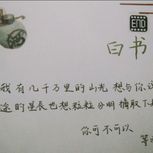 END
白书
我有几千万里的山光 想与你说
途的星辰也想粒粒分明 摘取下
你可不可以